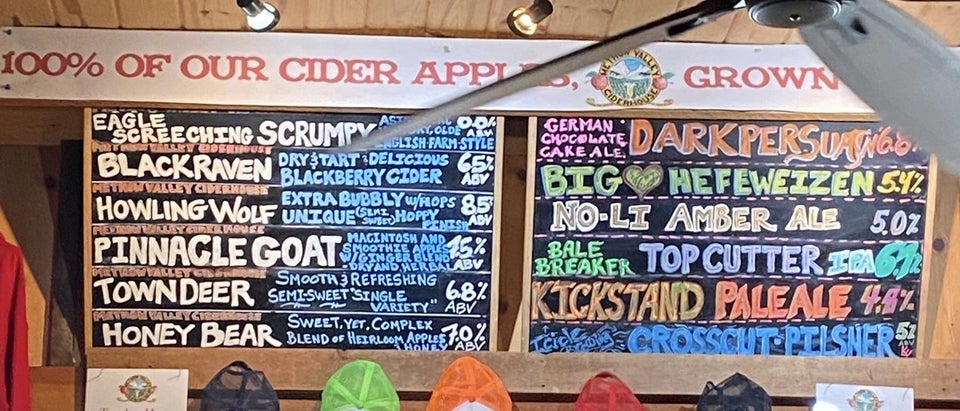 100% OF OUR CIDER APPLES, GROWN
METHOW VALLEY
CIDERHOUSE
EAGLE
SCREECHING SCRUMPY
ENGLISH FARM-STYLE
8.8%
ABV
METHOW VALLEY CIDERHOUSE
BLACK RAVEN
DRY & TART & DELICIOUS
BLACKBERRY CIDER
6.5%
ABV
METHOW VALLEY CIDERHOUSE
HOWLING WOLF
EXTRA BUBBLY W/HOPS
UNIQUE (SEMI SWEET) HOPPY
FINISH
8.5%
ABV
METHOW VALLEY CIDERHOUSE
PINNACLE GOAT
MACINTOSH AND
SMOOTHIE APPLES
W/GINGER BLEND
DRY AND HERBAL
ABV
METHOW VALLEY CIDERHOUSE
TOWN DEER
SMOOTH & REFRESHING
SEMI-SWEET "SINGLE
VARIETY"
6.8%
ABV
METHOW VALLEY CIDERHOUSE
HONEY BEAR
SWEET, YET, COMPLEX
BLEND OF HEIRLOOM APPLES
& HONEY
7.0%
ABV
GERMAN
CHOCOLATE
CAKE ALE.
DARK PERSUASION
BIG HEFEWEIZEN 5.4%
NO-LI AMBER ALE 5.0%
BALE
BREAKER TOP CUTTER IPA
KICKSTAND PALE ALE 4.8%
ICICLE CROSSCUT-PILSNER 5%
ABV